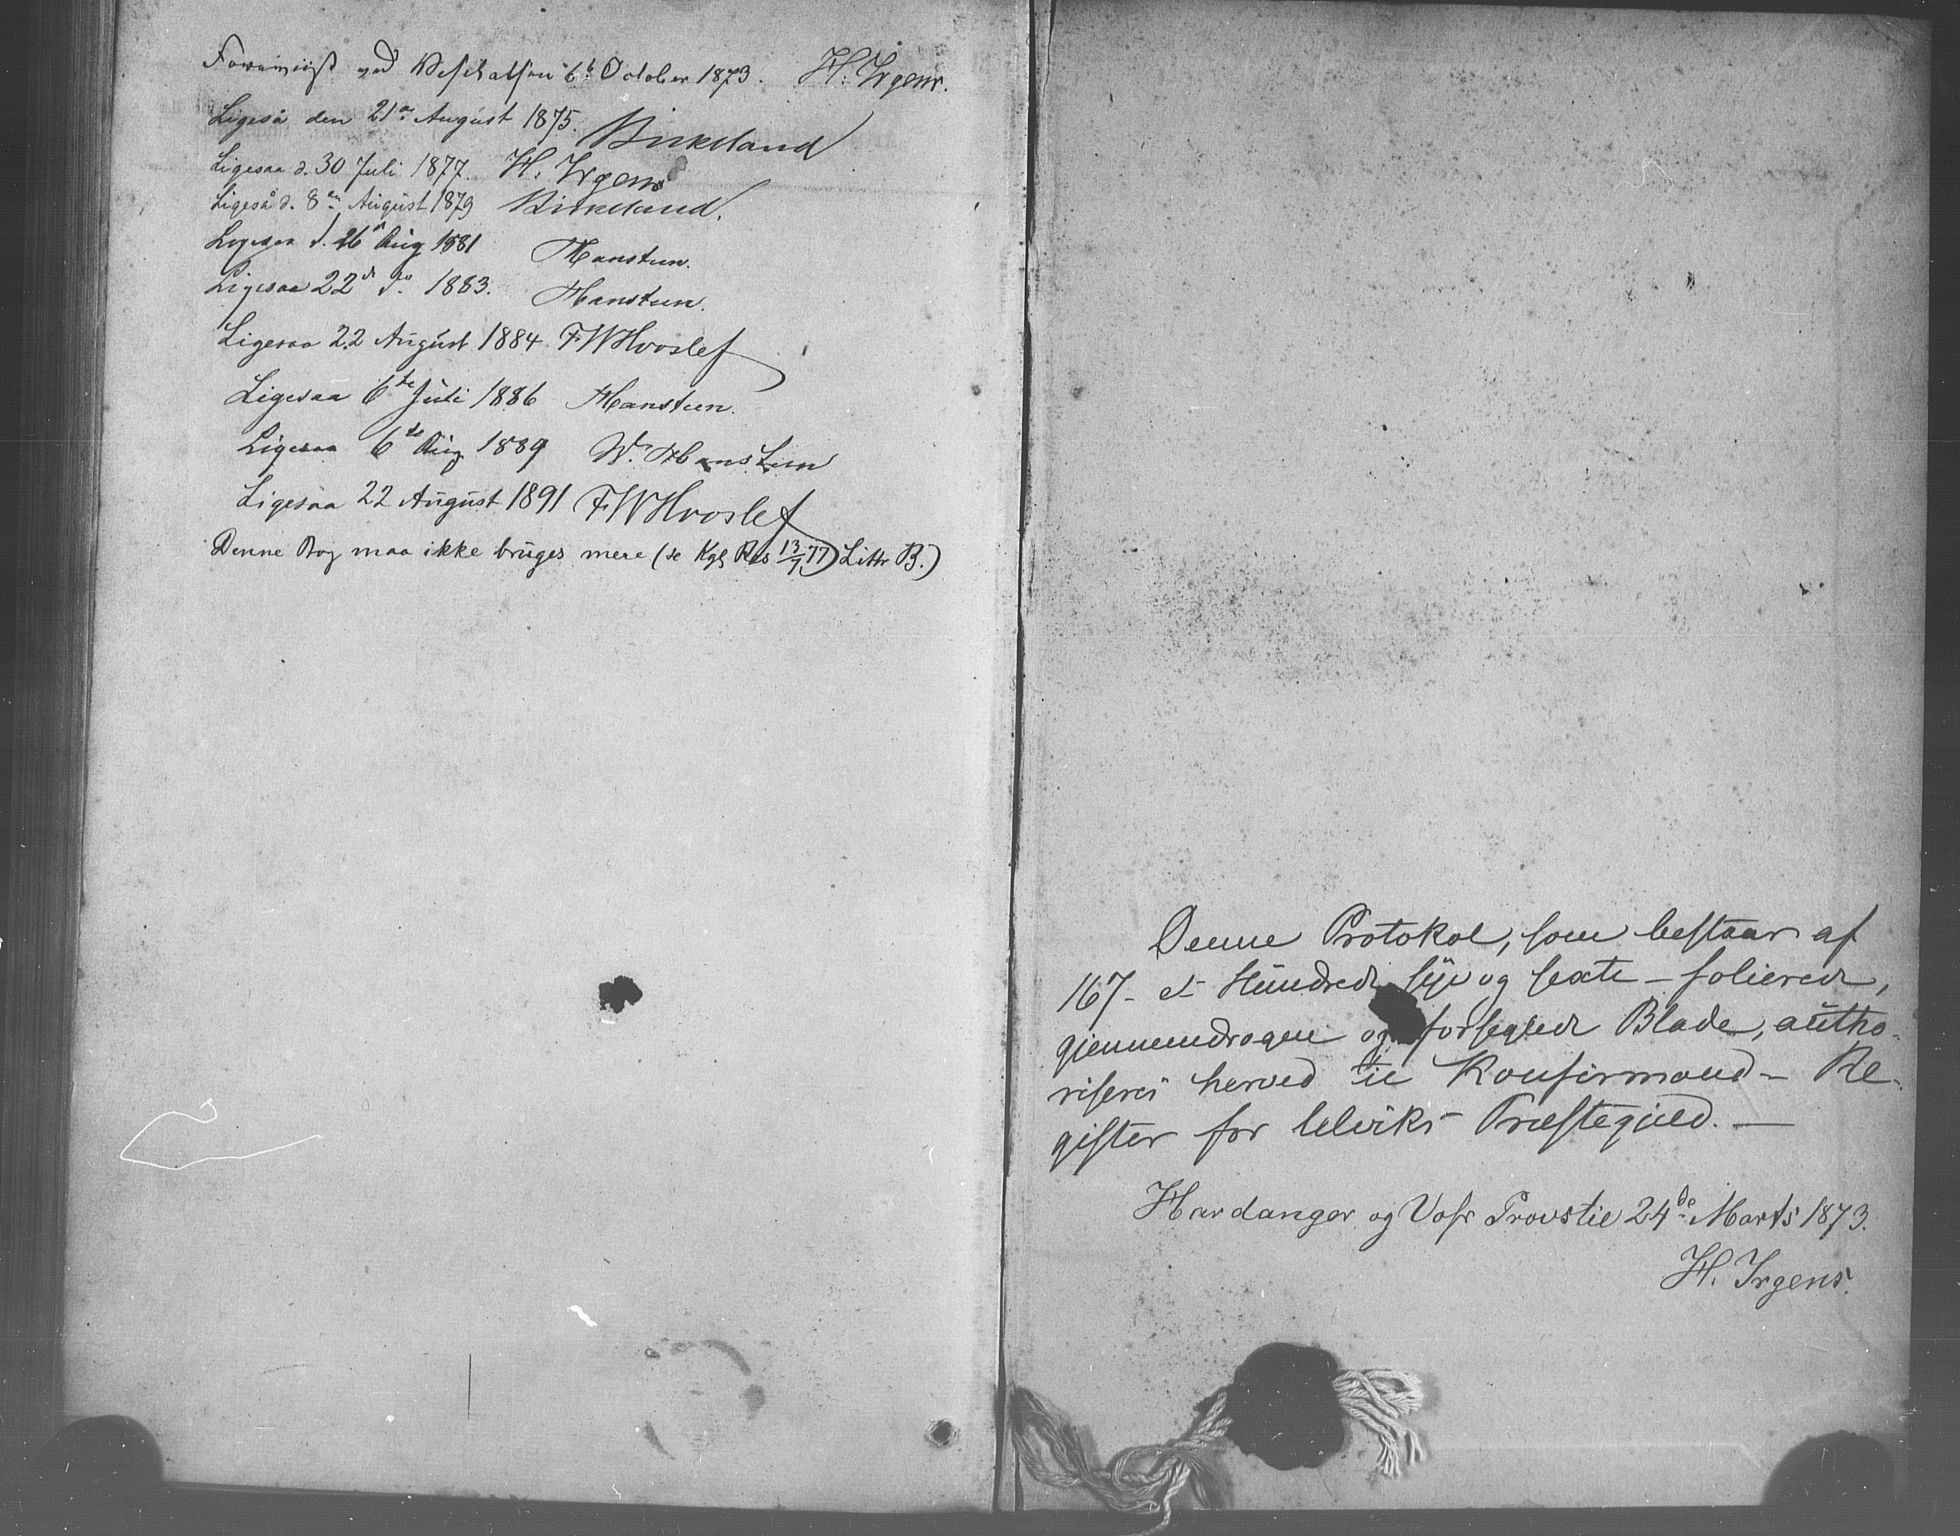 Foreviist ved Visitatsen 6te October 1873. H. Irgens.
Ligeså den 21de August 1875. Birkeland
Ligesaa d. 30 Juli 1877. H. Irgens
Ligeså d. 8de August 1879 Birkeland.
Ligesaa d. 26de Aug 1881 Hansteen.
Ligesaa 22de do. 1883. Hansteen.
Ligesaa 22 August 1884 FWHvoslef
Ligesaa 6te Juli 1886 Hansteen.
Ligesaa 6te Aug 1889 W. Hansteen
Ligesaa 22 August 1891 FWHvoslef
Denne Bog maa ikke bruges mere (se Kgl Res 13/7 77) Littr B.)
Denne Protokol, som bestaar af
167 - et Hundrede syv og sexti - folierede,
gjennemdragne og forseglede Blade, autho-
riseres herved til Konfirmand - Re-
gister for Ulviks Præstegjeld. —
Hardanger og Voss Provstie 24de Marts 1873.
H. Irgens.